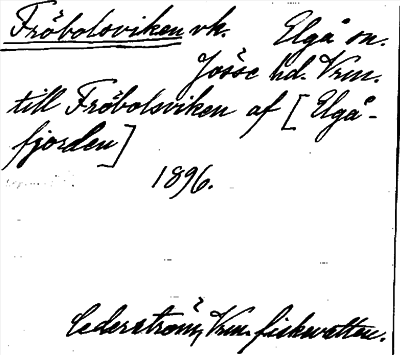 Fröbolsviken vk. Elgå sn.
Jösse hd. Vrm.
till Fröbolsviken af [Elgå-
fjorden]
1896.
Cederström, Vrm. fiskevatten.